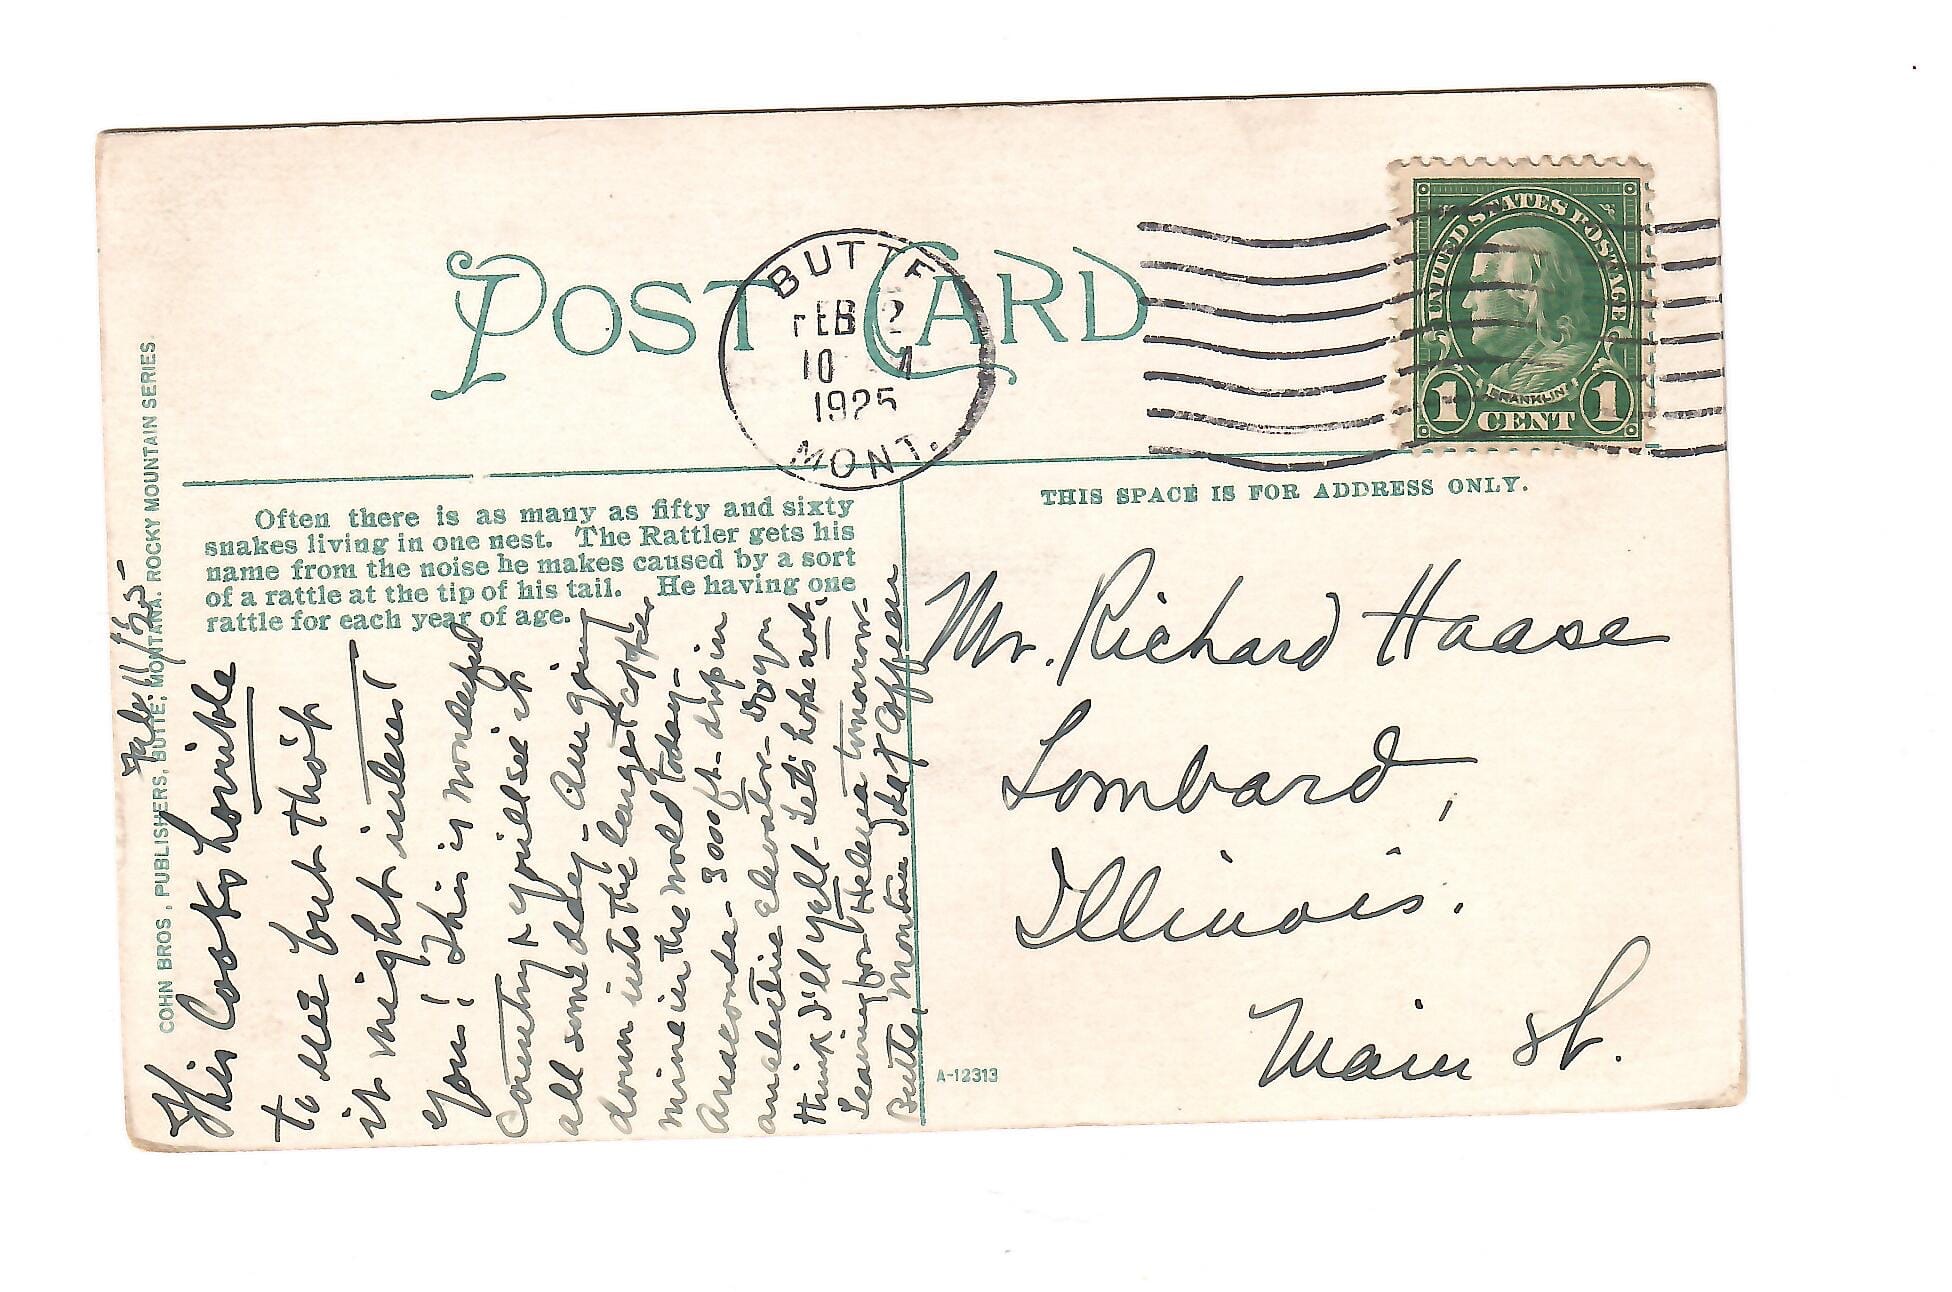 POST CARD
BUTTE
FEB 2
10 A
1925
MONT.
UNITED STATES POSTAGE
FRANKLIN
1 CENT 1
COHN BROS., PUBLISHERS, BUTTE, MONTANA. ROCKY MOUNTAIN SERIES
Often there is as many as fifty and sixty
snakes living in one nest. The Rattler gets his
name from the noise he makes caused by a sort
of a rattle at the tip of his tail. He having one
rattle for each year of age.
THIS SPACE IS FOR ADDRESS ONLY.
Feb. 1/25-
This looks horrible
to me but tho't
it might interest
you! This is wonderful
country & you'll see it
all some day - Am going
down into the largest copper
mine in the world today -
Anaconda - 3000 ft. drop in
an electric elevator - Do you
think I'll yell - Let's hope not.
Leaving for Helena tomorrow -
Butte, Montana
Mr. Richard Haase
Lombard,
Illinois.
Main St.
A-12313